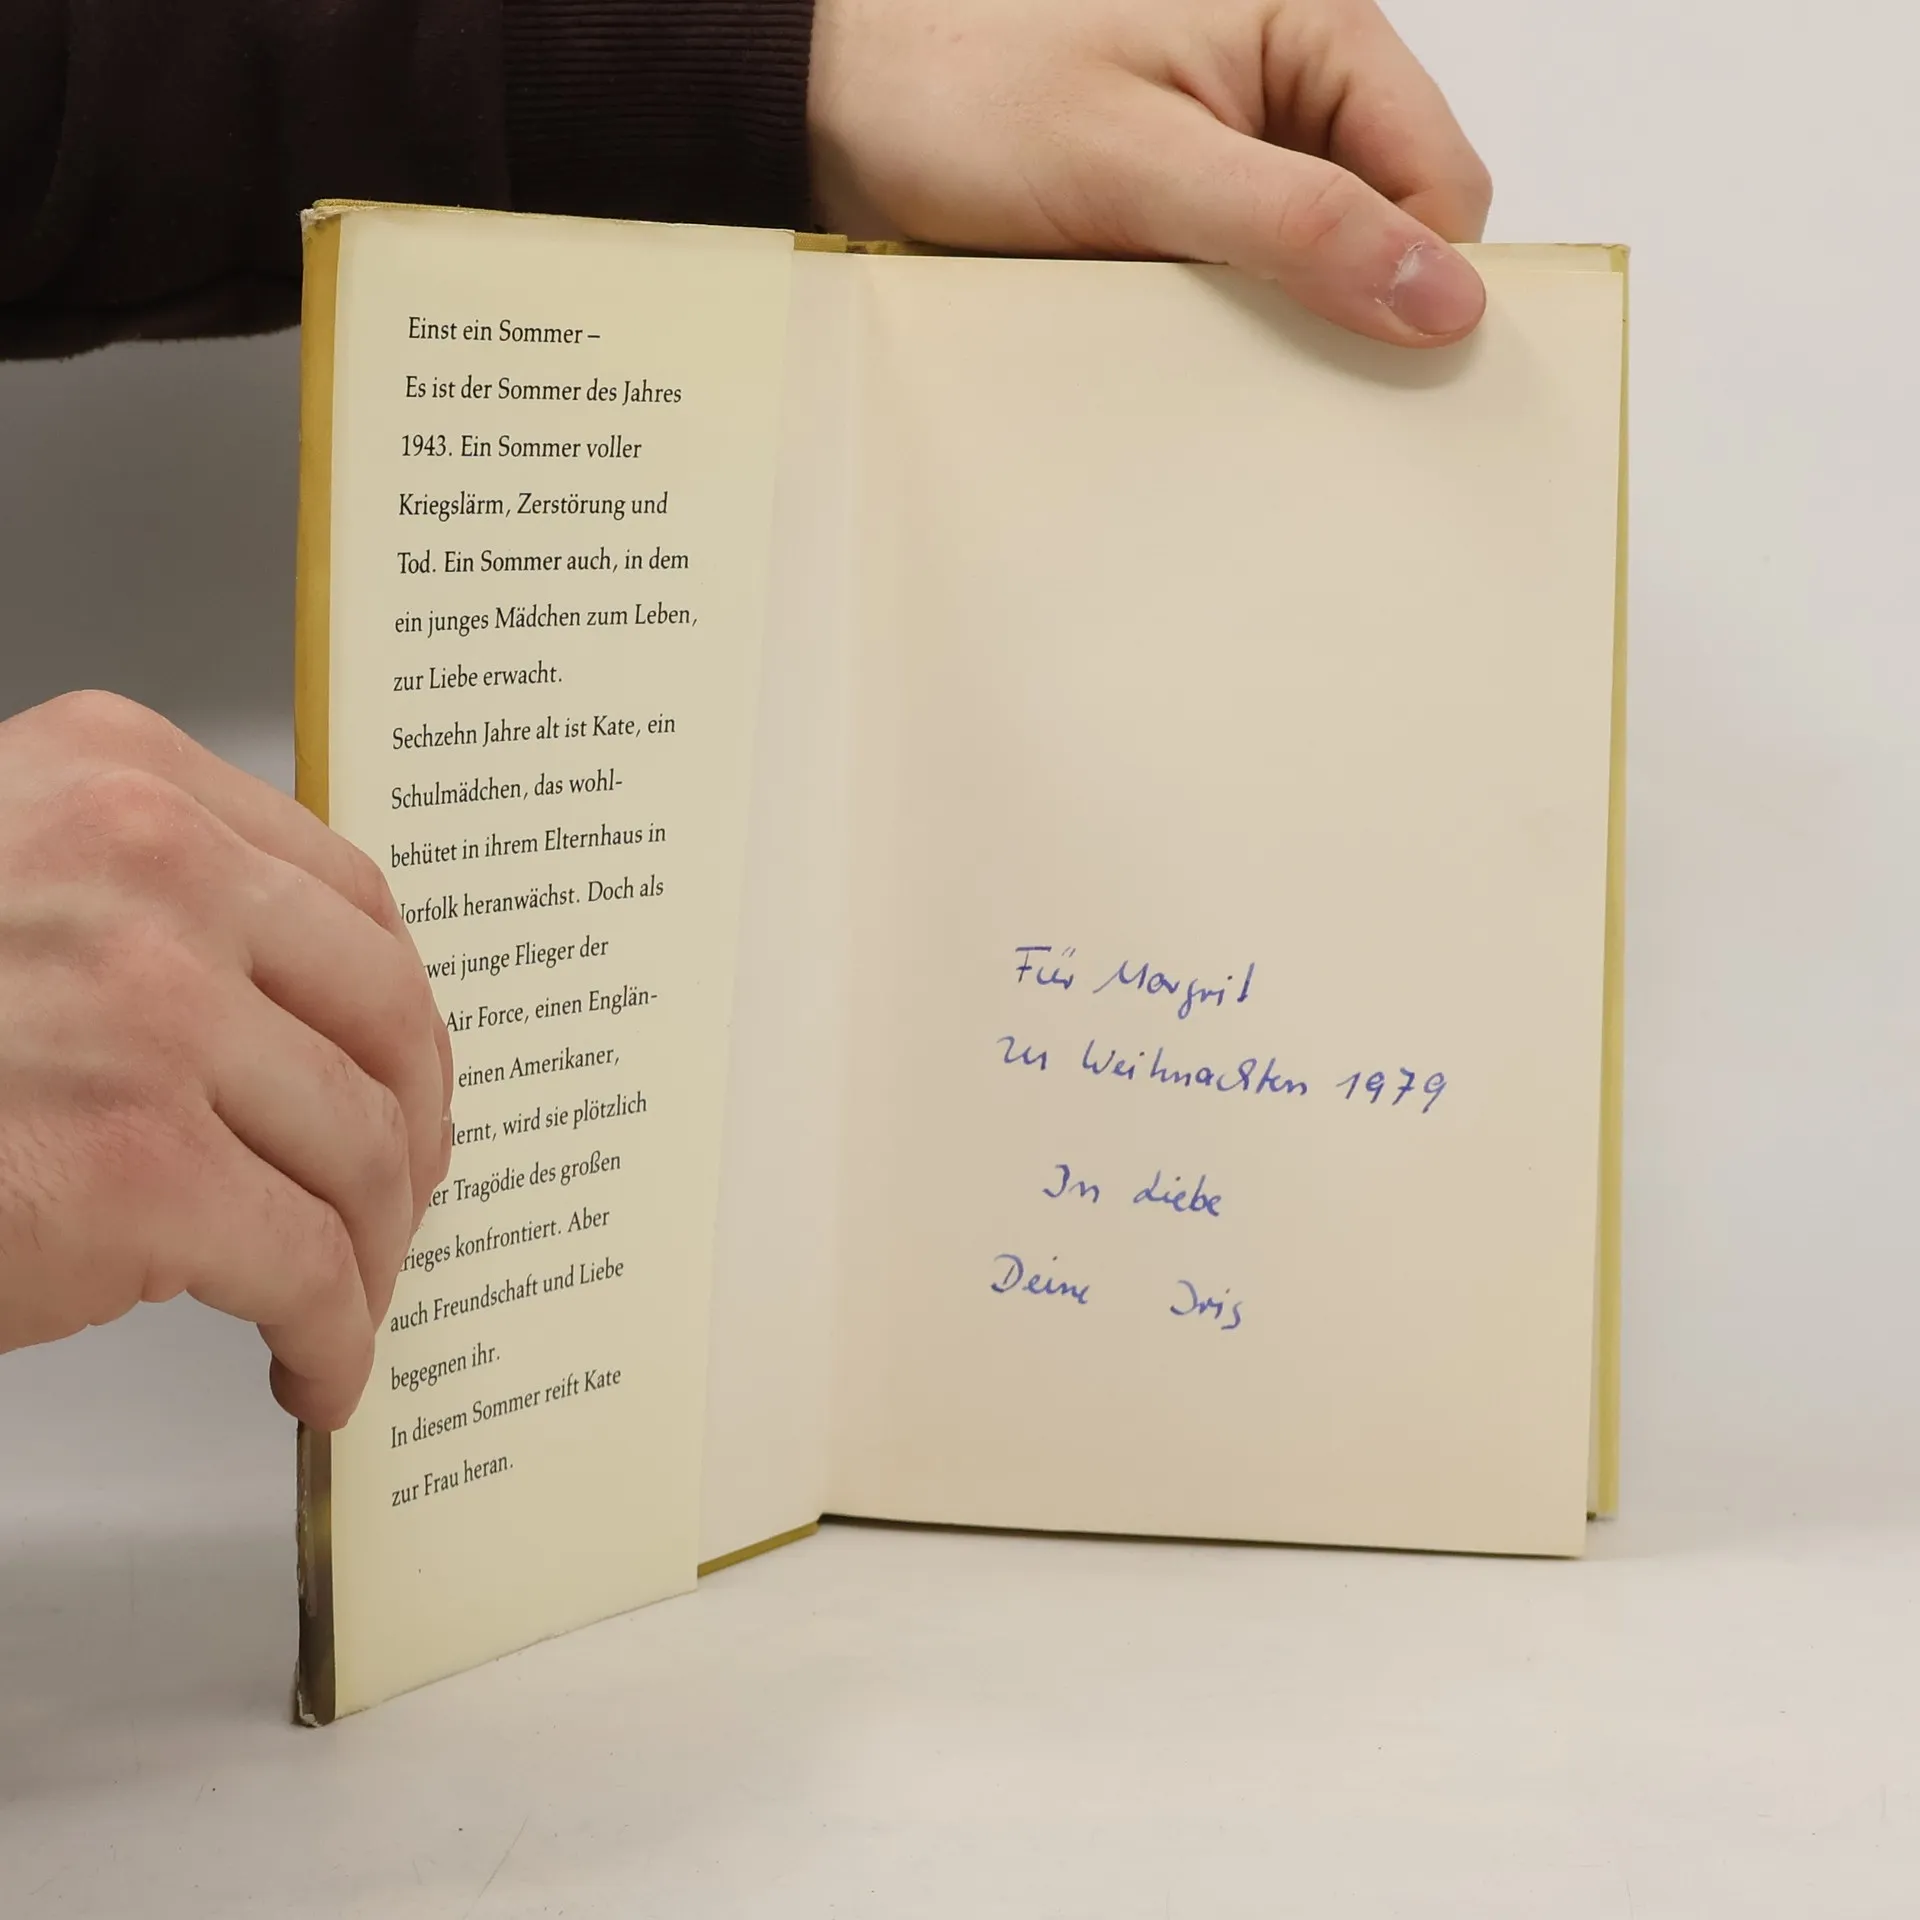 Einst ein Sommer –
Es ist der Sommer des Jahres
1943. Ein Sommer voller
Kriegslärm, Zerstörung und
Tod. Ein Sommer auch, in dem
ein junges Mädchen zum Leben,
zur Liebe erwacht.
Sechzehn Jahre alt ist Kate, ein
Schulmädchen, das wohl-
behütet in ihrem Elternhaus in
Norfolk heranwächst. Doch als
zwei junge Flieger der
Air Force, einen Englän-
einen Amerikaner,
lernt, wird sie plötzlich
Tragödie des großen
Krieges konfrontiert. Aber
auch Freundschaft und Liebe
begegnen ihr.
In diesem Sommer reift Kate
zur Frau heran.
Für Margrit
zu Weihnachten 1979
In Liebe
Deine Iris